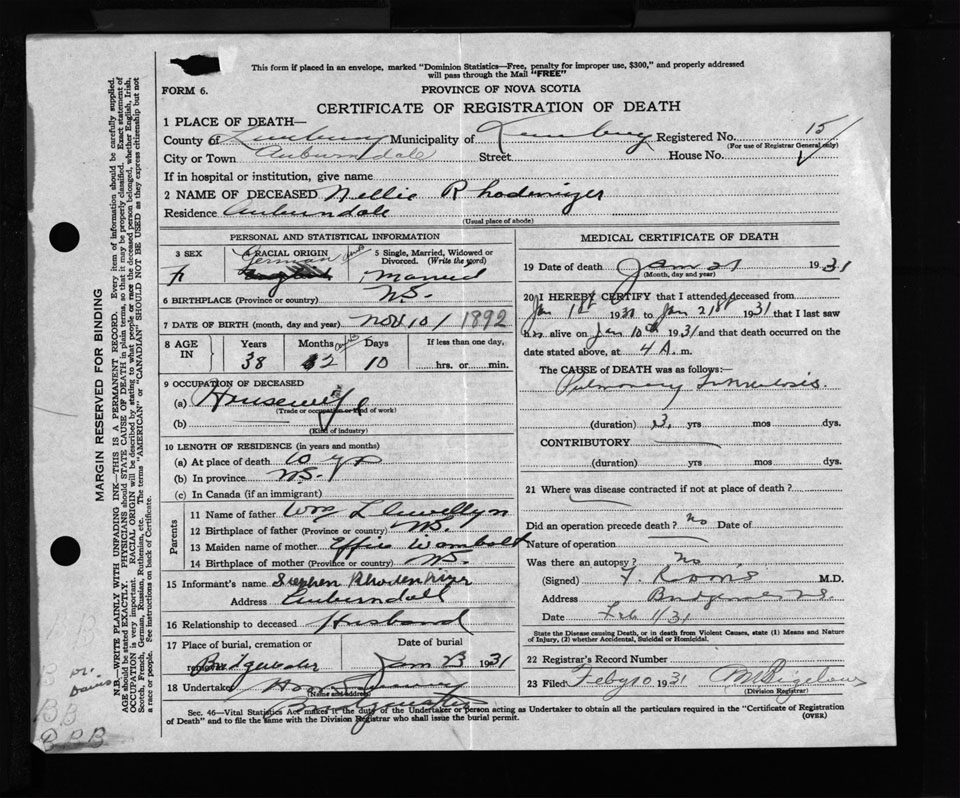 This form if placed in an envelope, marked "Dominion Statistics—Free, penalty for improper use, $300," and properly addressed
will pass through the Mail "FREE"
FORM 6.
PROVINCE OF NOVA SCOTIA
CERTIFICATE OF REGISTRATION OF DEATH
1 PLACE OF DEATH—
County of Lunenburg Municipality of Lunenburg Registered No. 15
(For use of Registrar General only)
City or Town Auburndale Street House No.
If in hospital or institution, give name
2 NAME OF DECEASED Nellie Rhodinizer
Residence Auburndale
(Usual place of abode)
PERSONAL AND STATISTICAL INFORMATION
3 SEX 4 RACIAL ORIGIN 5 Single, Married, Widowed or Divorced. (Write the word)
F German English Married
6 BIRTHPLACE (Province or country) N.S.
7 DATE OF BIRTH (month, day and year) Nov 10/ 1892
8 AGE IN Years Months Days If less than one day,
38 2 10 hrs. or min.
9 OCCUPATION OF DECEASED
(a) Housewife
(Trade or occupation or kind of work)
(b)
(Kind of industry)
10 LENGTH OF RESIDENCE (in years and months)
(a) At place of death 10 yrs
(b) In province N.S.
(c) In Canada (if an immigrant)
Parents
11 Name of father Wm Llewellyn
12 Birthplace of father (Province or country) N.S.
13 Maiden name of mother Effie Wambolt
14 Birthplace of mother (Province or country) N.S.
15 Informant's name Stephen Rhodenizer
Address Auburndale
16 Relationship to deceased Husband
17 Place of burial, cremation or removal Date of burial
Bridgewater Jan 23 1931
18 Undertaker
(Name and address)
Bridgewater
MEDICAL CERTIFICATE OF DEATH
19 Date of death Jan 21 1931
(Month, day and year)
20 I HEREBY CERTIFY that I attended deceased from
Jan 1st 1930 to Jan 21st 1931 that I last saw
h alive on Jan 10th 1931 and that death occurred on
date stated above, at 4 A. m.
The CAUSE OF DEATH was as follows:—
Pulmonary Tuberculosis.
(duration) 3 yrs mos dys.
CONTRIBUTORY
(duration) yrs mos dys.
21 Where was disease contracted if not at place of death?
Did an operation precede death? No Date of
Nature of operation
Was there an autopsy? No
(Signed) M.D.
Address Bridgewater N.S.
Date Feb 1/31
State the Disease causing Death, or in death from Violent Causes, state (1) Means and Nature of Injury, (2) whether Accidental, Suicidal or Homicidal.
22 Registrar's Record Number
23 Filed Feby 10 1931 Bigelow
(Division Registrar)
Sec. 46—Vital Statistics Act makes it the duty of the Undertaker or person acting as Undertaker to obtain all the particulars required in the "Certificate of Registration
of Death" and to file the same with the Division Registrar who shall issue the burial permit.
(OVER)
MARGIN RESERVED FOR BINDING
N.B.—WRITE PLAINLY WITH UNFADING INK—THIS IS A PERMANENT RECORD. Every item of information should be carefully supplied.
AGE should be stated EXACTLY. PHYSICIANS should STATE CAUSE OF DEATH in plain terms, so that it may be properly classified. Exact statement of
OCCUPATION is very important. RACIAL ORIGIN will be described by stating to what people or race the deceased person belonged, whether English, Irish,
Scotch, French, German, Russian, Ruthenian, etc. The terms "AMERICAN" or "CANADIAN" SHOULD NOT BE USED as they express citizenship but not
a race or people. See instructions on back of Certificate.
or.
BB
BBB